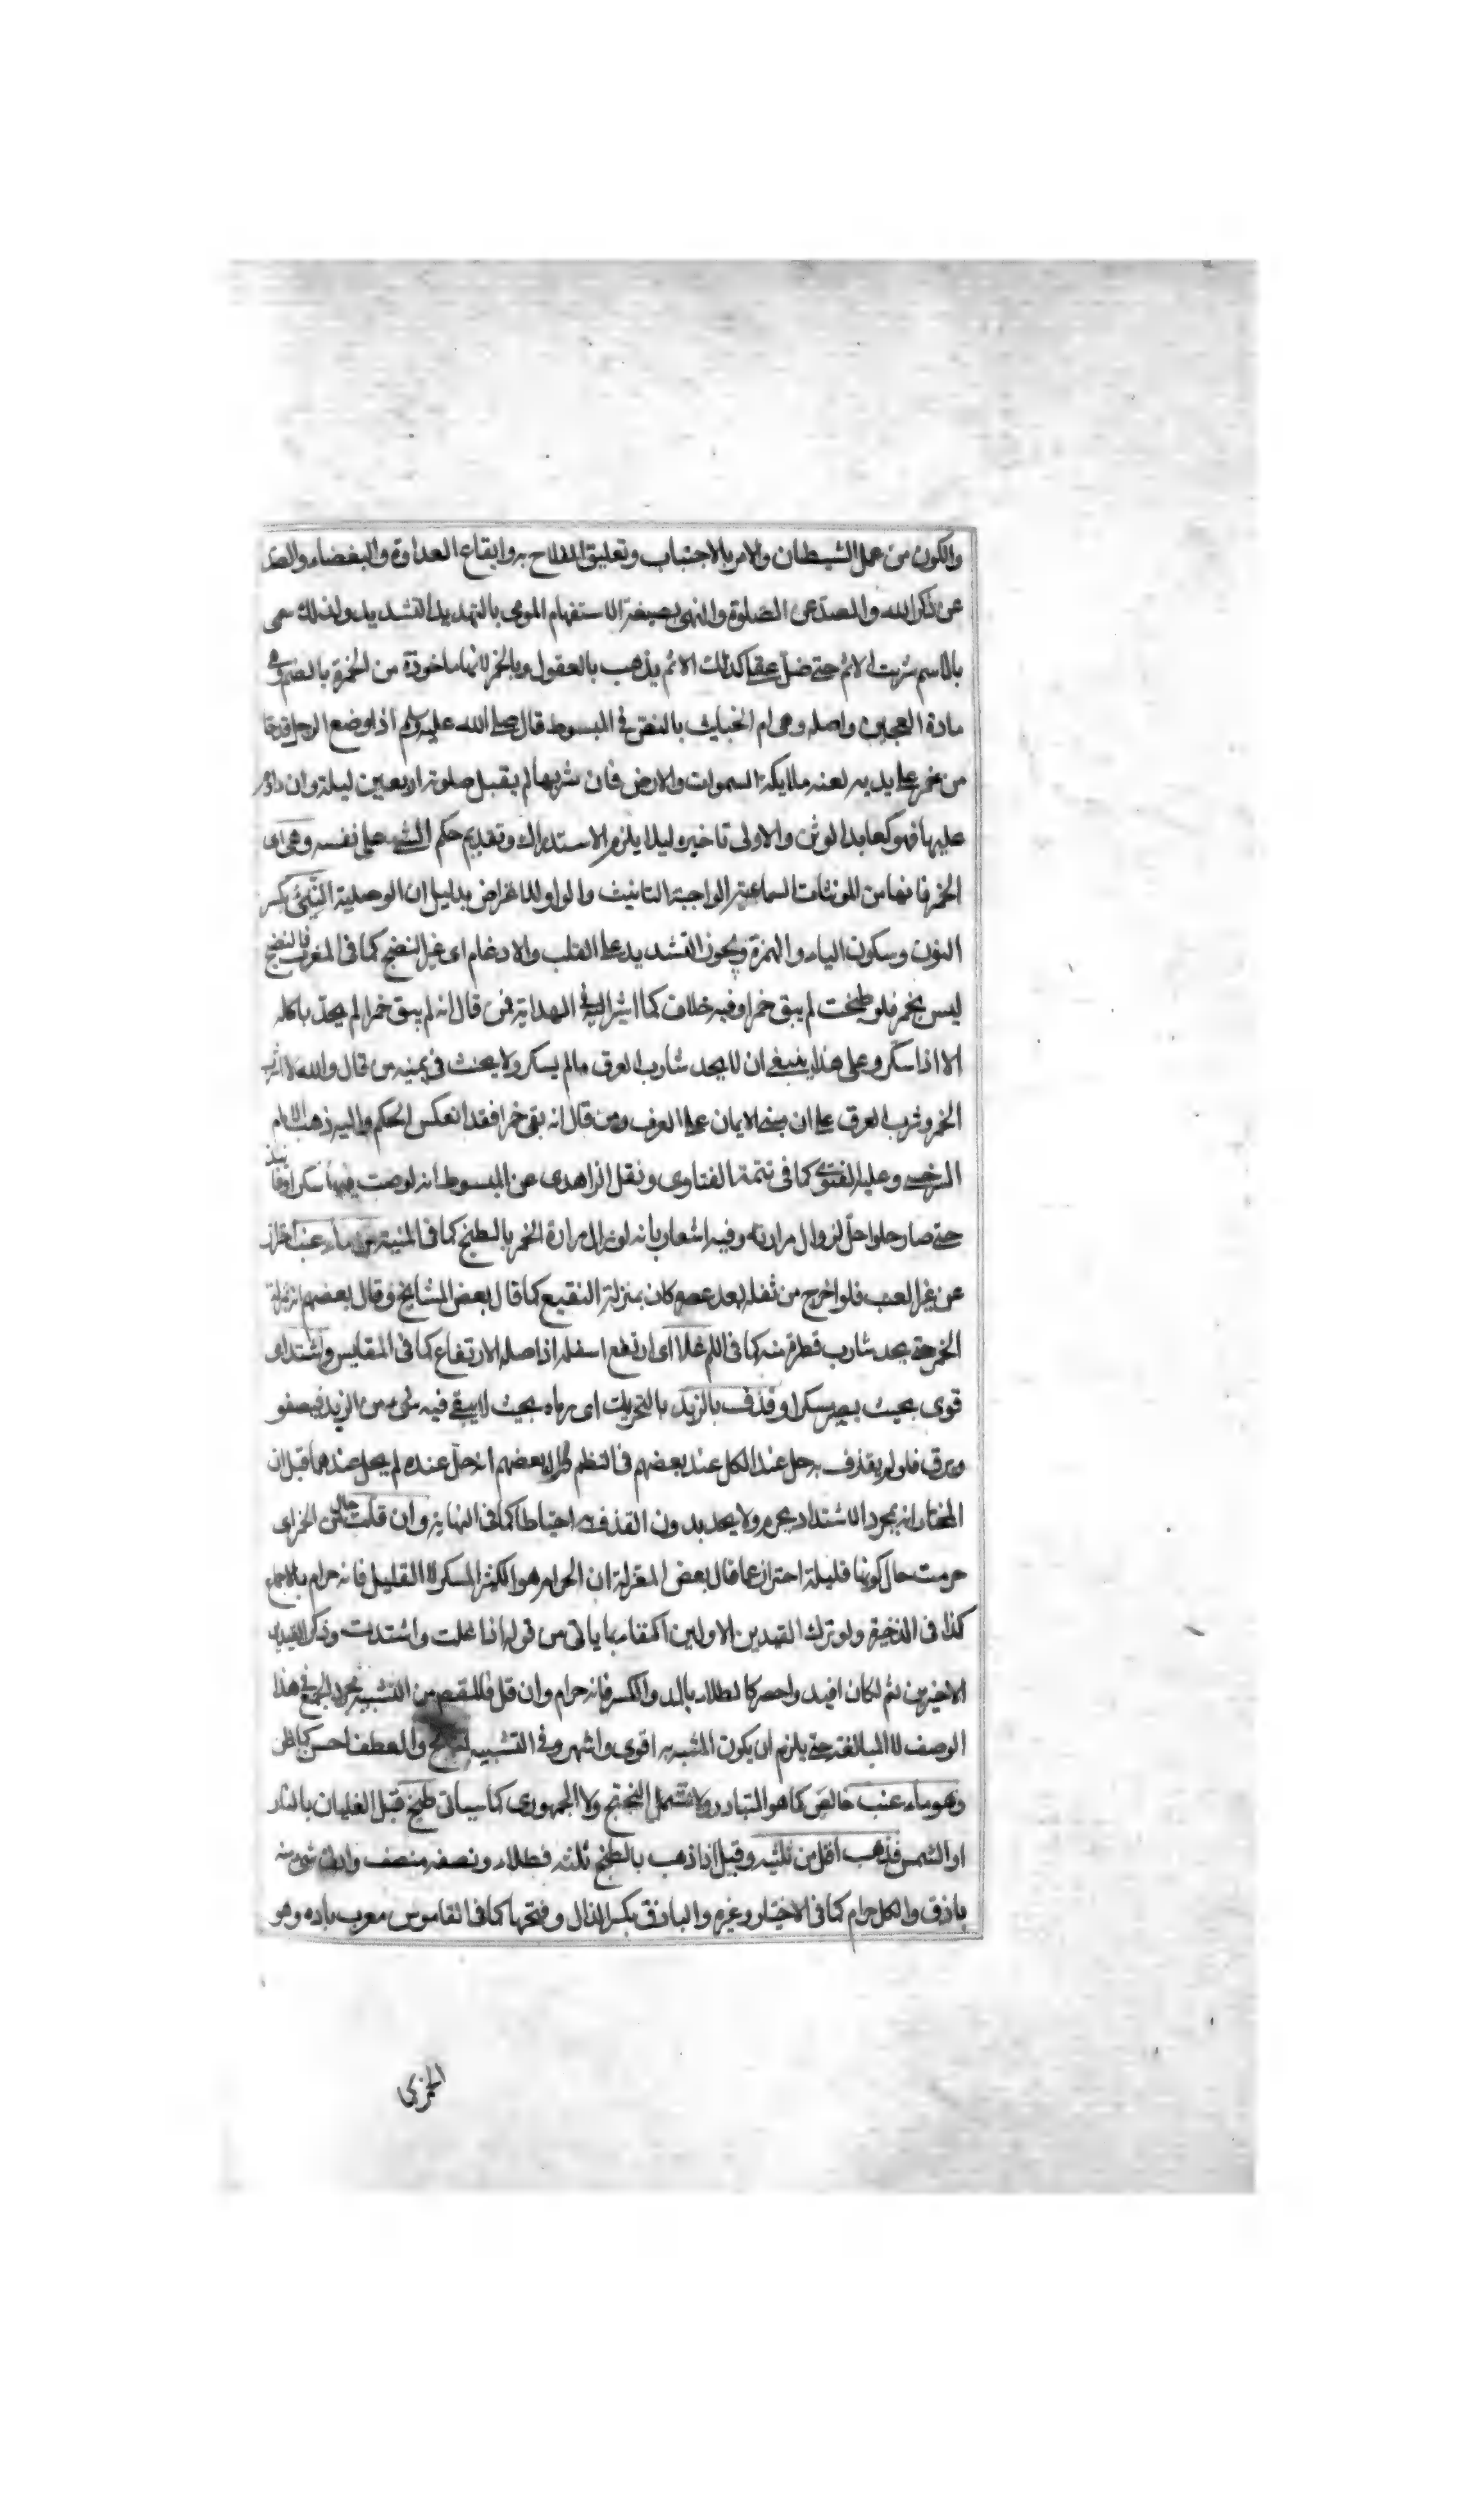 والكون من عمل الشيطان والامر بالاجتناب وتعليق الفلاح به وايقاع العداوة والبغضاء والصد
عن ذكر الله والصد عن الصلوة والنهى بصيغة الاستفهام الموعى بالتهديد الشديد ولذلك سمى
بالاسم شربت الاثم حتى ضل عقلى كذلك الاثم يذهب بالعقول وبالخمر لانها ماخوذة من الخمرة بالضم وهى
مادة العجين واصله وهى ام الخبايث بالنص فى المبسوط قال صلى الله عليه وسلم اذا وضع الرجل قدحا
من خمر على يديه لعنه ملايكة السموات والارض فان شربها لم يقبل صلوته اربعين ليلة وان داوم
عليها فهو كعابد الوثن والاولى تاخيره ليلا يلزم الاستدراك وتقديم حكم الشىء على نفسه وهى اى
الخمر فانها من المونثات السماعية الواجبة التانيث والواو للاعتراض بدليل ان الوصلية النيئ بكسر
النون وسكون الياء والهمزة ويجوز التشديد على القلب والادغام اى غير النضج كما فى المغرب فالنضج
ليس بخمر فلو طبخت لم يبق خمرا وفيه خلاف كما اشير اليه فى الهداية فمن قال انه لم يبق خمرا لم يحد باكله
الا اذا سكر وعلى هذا ينبغى ان لا يحد شارب العرق مالم يسكر ولا يحنث فى يمينه من قال والله لا اشرب
الخمر وشرب العرق على ان مبنى الايمان على العرف ومن قال انه بقى خمرا فقد انعكس الحكم واليه ذهب الامام
السرخسى وعليه الفتوى كما فى تتمة الفتاوى ونقل الزاهدى عن المبسوط انه لو صب فيها سكرا او فانيذ
حتى صار حلوا حل لزوال مرارته وفيه اشعار بانه لو زال مرارة الخمر بالطبخ كما فى المنية من ماء عنب احتراز
عن غير العنب فلو اخرج من ثفله بعد عصره كان بمنزلة النقيع كما قال بعض المشايخ وقال بعضهم انه بمنزلة
الخمر حتى يحد شارب قطرة منه كما فى غلا اى ارتفع اسفله اذ اصله الارتفاع كما فى المقايس واشتد اى
قوى بحيث يصير مسكرا وقذف بالزبد بالتحريك اى رماه بحيث لا يبقى فيه شىء من الزبد فيصفو
ويرق فلو لم يقذف به حل عند الكل عند بعضهم فى النظم بعضهم انه حل عنده لم يحل عندهما قبل ان
المختار انه بمجرد الاشتداد يحرم ولا يحد بدون القذف احتياطا كما فى النهاية وان قلت حال من الخمر اى
حرمت حال كونها قليلة احتراز عما قال بعض المعتزلة ان الحرام هو الكثير المسكر لا القليل فانه حرام بالاجماع
كذا فى الذخيرة ولو ترك القيدين الاولين اكتفاء بما ياتى من قوله اذا غلت واشتدت وذكر القيدين
الاخيرين ثم لكان افيد واحصر كالطلاء بالمد والكسر فانه حرام وان قل فالمقصود من التشبيه مجرد الجمع فى هذا
الوصف لا المبالغة حتى يلزم ان يكون المشبه به اقوى واشهر وفى التشبيه والعطف احسن كما ظن
وهو ماء عنب خالص كما هو المتبادر ولا يشمل البختج ولا الجمهورى كما سياتى طبخ قبل الغليان بالنار
او الشمس فذهب اقل من ثلثيه وقيل اذا ذهب بالطبخ ثلثه فطلاء ونصفه منصف وادنى شىء منه
باذق والكل حرام كما فى الاختيار وغيره والباذق بكسر الذال وفتحها كما فى القاموس معرب باده وهو
الخمرى